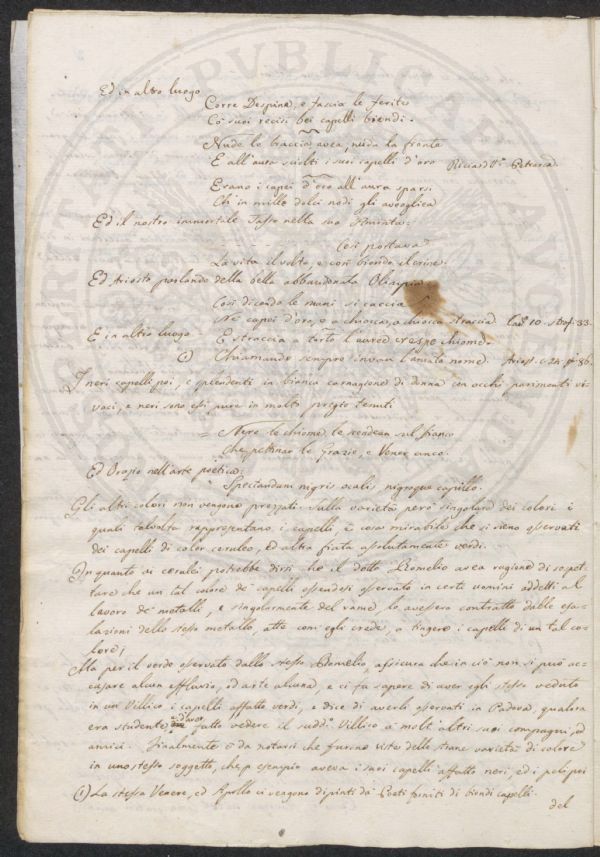 Ed in altro luogo
Corre Despina, e fascia le ferite
Co' suoi recisi bei capelli biondi.
Nude le braccia avea, nuda la fronte
E all'aura sciolti i suoi capelli d'oro Ricciard.º Petrarca
Erano i capei d'oro all'aura sparsi
Chi in mille dolci nodi gli avvoglica
Ed il nostro immortale Tasso nella sua Aminta:
Così portava
La vita il volto, e così biondo il crine.
Ed Ariosto parlando della bella abbandonata Olimpia
Così dicendo le mani si caccia
Ne' capei d'oro, e a chiocca, a chiocca straccia. Can. 10. Stof. 33.
E in altro luogo E straccia a torto l'auree crespe chiome.
(1) Chiamando sempre invan l'amato nome. Ariost. c. 24. 86.
I neri capelli poi, e splendenti in bianca carnagione di donna con occhi parimenti vi-
vaci, e neri sono essi pure in molto pregio tenuti
= Nere le chiome le scendean sul fianco
Che pettinar le Grazie, e Vener anco.
Ed Orazio nell'arte poetica:
Spectandum nigris oculis nigroque capillo.
Gli altri colori non vengono prezzati. Sulla varietà però singolare dei colori i
quali talvolta rappresentano i capelli è cosa mirabile che si sieno osservati
dei capelli di color ceruleo, ed altra fiata assolutamente verdi.
In quanto ai cerulei potrebbe dirsi che il dotto Romelio avea ragione di sospet-
tare che un tal colore de' capelli essendosi osservato in certi uomini addetti al
lavoro de' metalli, e singolarmente del rame, lo avessero contratto dalle esa-
lazioni dello stesso metallo, atte com'egli crede, a tingere i capelli di un tal co-
lore;
Ma per il verde osservato dallo stesso Romelio, assicura che in ciò non si può ac-
cusare alcun effluvio, od arte alcuna, e ci fa sapere di aver egli stesso veduto
in un Villico i capelli affatto verdi, e dice di averli osservati in Padova, qualora
era studente ed aver fatto vedere il sudd.º Villico a molt'altri suoi compagni, ed
amici. Finalmente è da notarsi che furono viste delle strane varietà di colore
in uno stesso soggetto, che p. esempio aveva i suoi capelli affatto neri, ed i peli poi
(1) La stessa Venere, ed Apollo ci vengono dipinti da' Poeti forniti di biondi capelli.
del